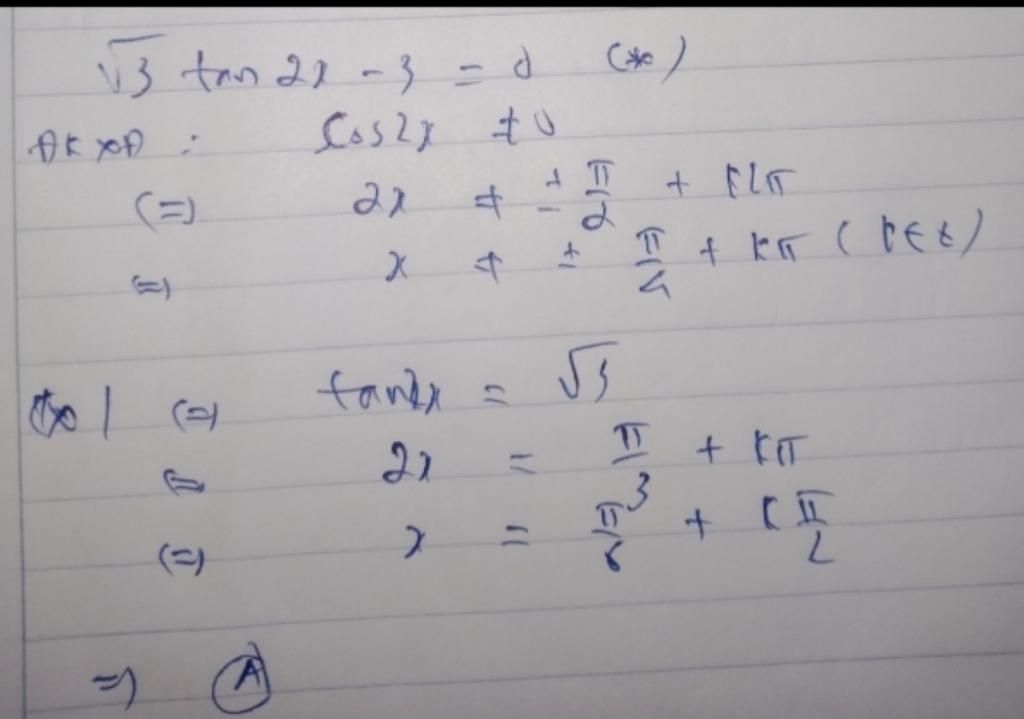 √3 tan 2x - 3 = 0 (*)
ĐKXĐ : Cos2x ≠ 0
(=) 2x ≠ ± π/2 + k2π
(=) x ≠ ± π/4 + kπ (k∈Z)
(*) (=) tan2x = √3
(=) 2x = π/3 + kπ
(=) x = π/6 + k π/2
=) A